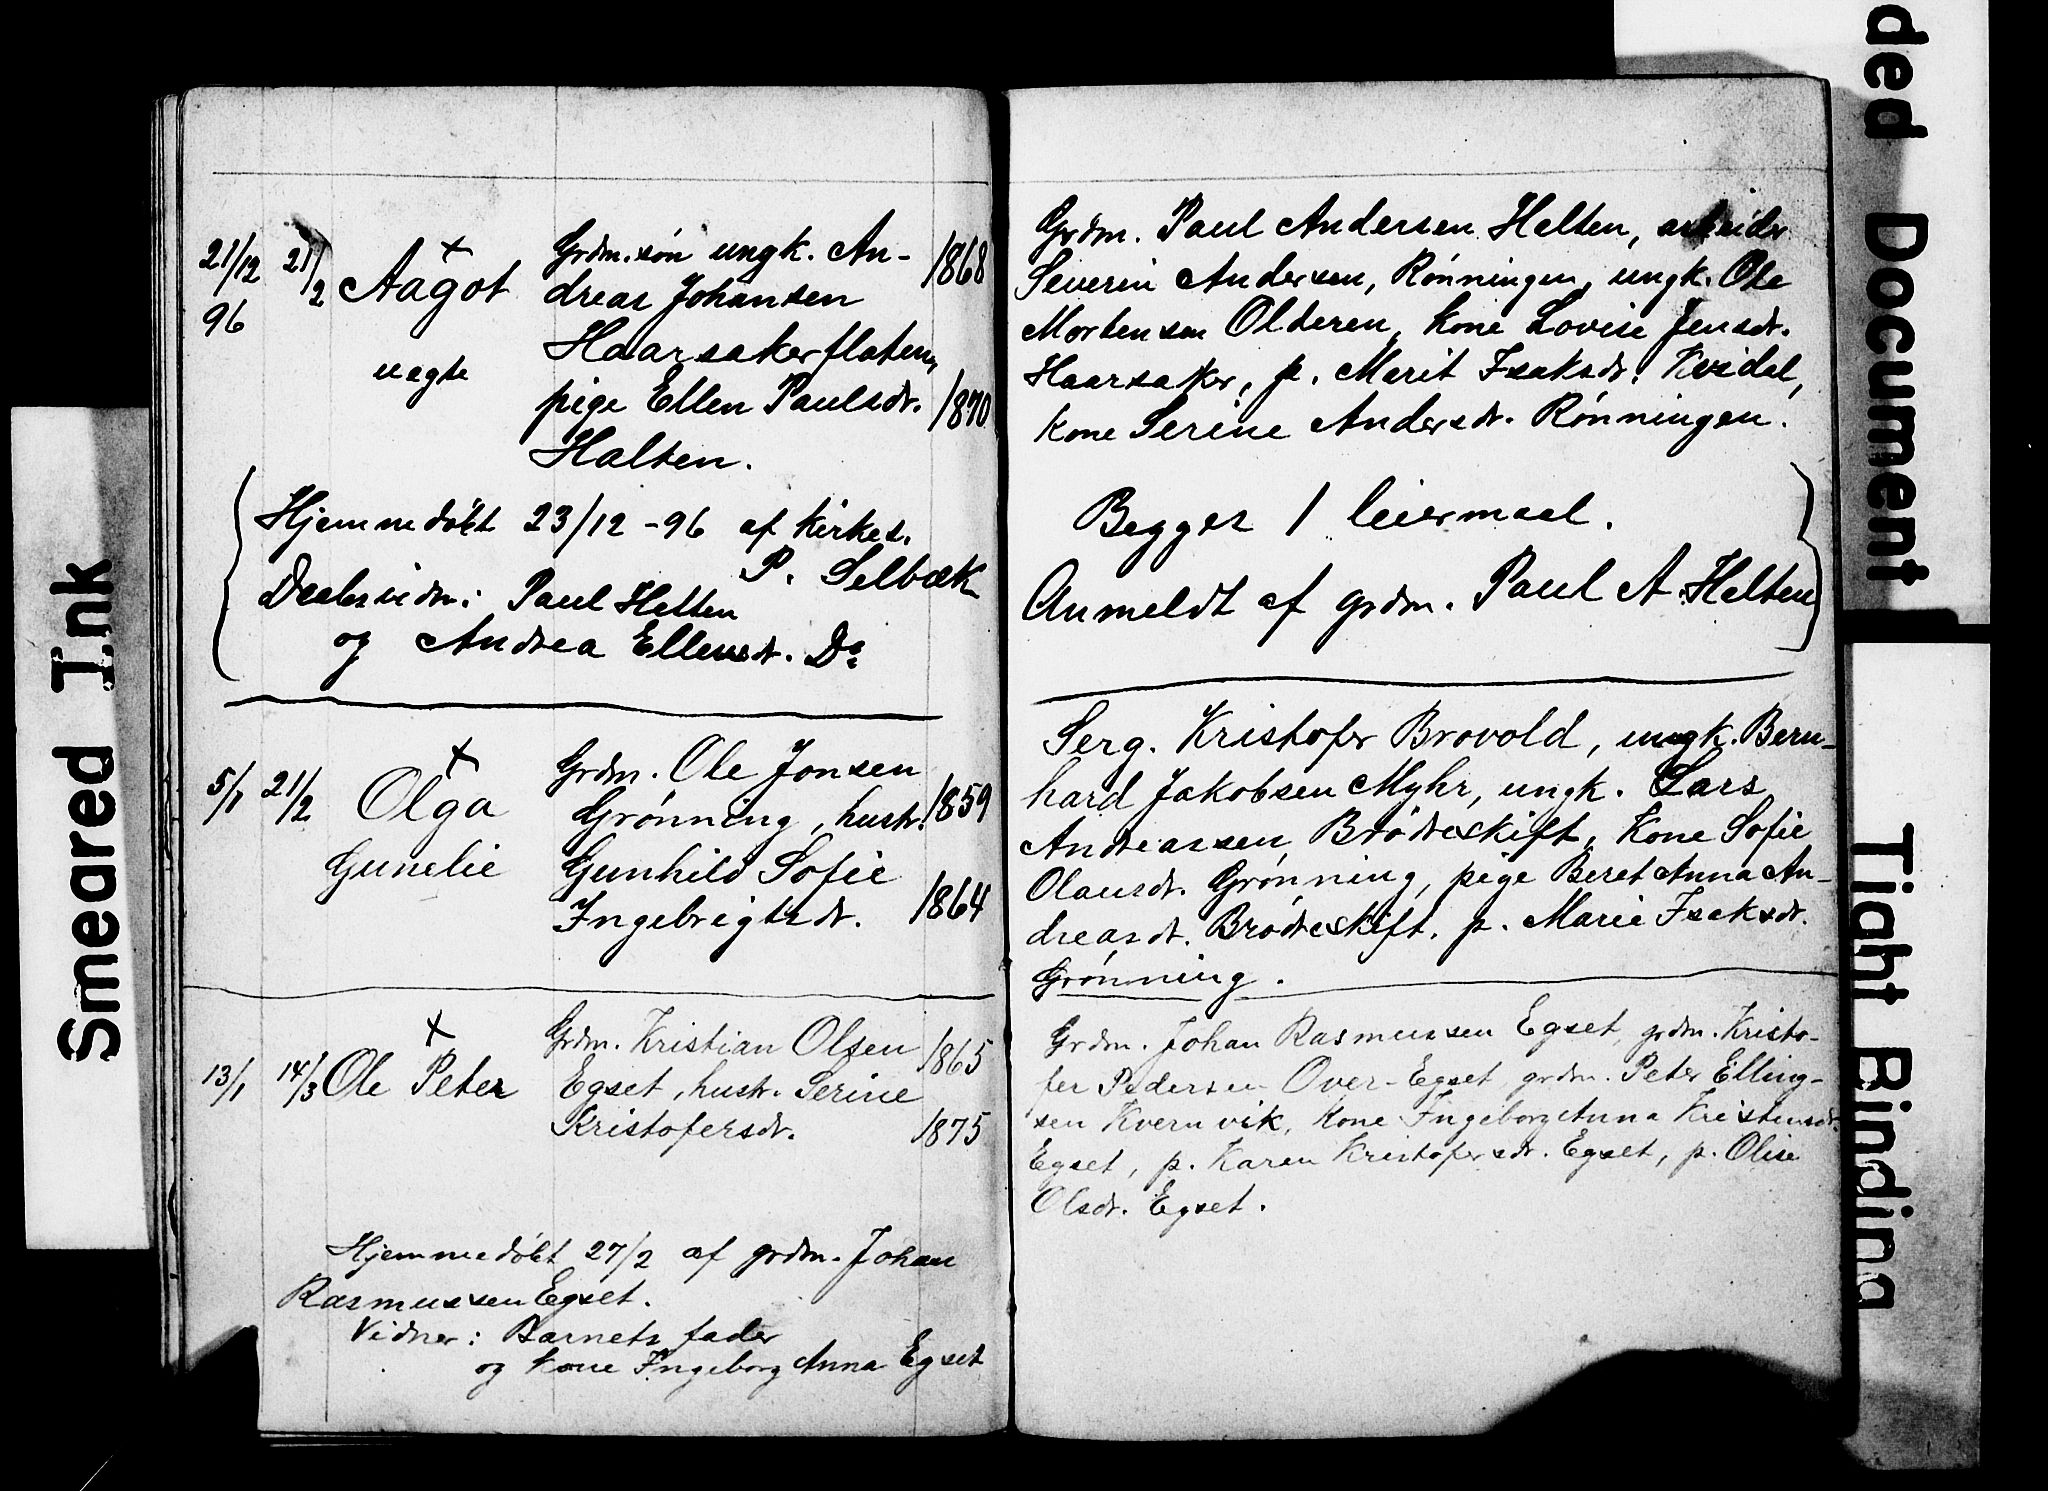 21/12 21/2 Aagot Grdm.søn ungk. An- 1868
96 dreas Johansen
uægte Haarsakerflaten,
pige Ellen Paulsdr. 1870
Halten.
Hjemmedøbt 23/12 -96 af kirkes.
P. Selbæk
Daabsvidn: Paul Halten
og Andrea Ellensdr. Do
5/1 21/2 Olga Grdm. Ole Jonsen
Grønning, hustr. 1859
Gunelie Gunhild Sofie
Ingebrigtsdr. 1864
13/1 14/3 Ole Peter Grdm. Kristian Olsen 1865
Egset, hustr. Serine
Kristofersdr. 1875
Hjemmedøbt 27/2 af grdm. Johan
Rasmussen Egset.
Vidner: Barnets fader
og kone Ingeborg Anna Egset
Grdm. Paul Andersen Halten, arbeider
Severin Andersen, Rønningen, ungk. Ole
Mortensen Olderen, kone Lovise Jensdr.
Haarsaker, p. Marit Isaksdr. Kvidal,
kone Serine Andersdr. Rønningen.
Begges 1 leiermaal.
Anmeldt af grdm. Paul A. Halten
Serg. Kristofer Brovold, ungk. Bern-
hard Jakobsen Myhr, ungk. Lars
Andreassen Brødreskift, kone Sofie
Olausdr. Grønning, pige Beret Anna An-
dreasdr. Brødreskift, p. Marie Isaksdr.
Grønning.
Grdm. Johan Rasmussen Egset, grdm. Kristo-
fer Pedersen Over-Egset, grdm. Peter Elling-
sen Kvernvik, kone Ingeborg Anna Kristensdr.
Egset, p. Karen Kristofersdr. Egset, p. Olise
Olsdr. Egset.
Smeared Ink
ded Document
Tight Binding